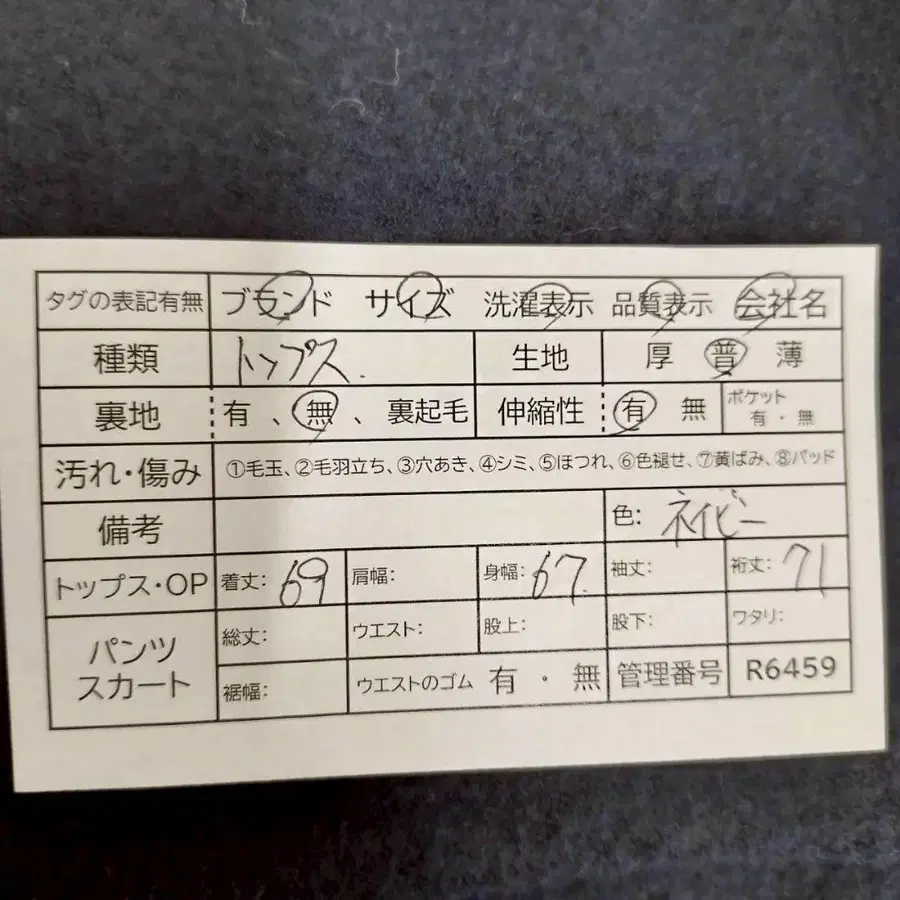 タグの表記有無 ブランド サイズ 洗濯表示 品質表示 会社名
種類 トップス. 生地 厚 普 薄
裏地 有 、 無 、 裏起毛 伸縮性 有 無 ポケット 有・無
汚れ・傷み ①毛玉、②毛羽立ち、③穴あき、④シミ、⑤ほつれ、⑥色褪せ、⑦黄ばみ、⑧パッド
備考 色: ネイビー
トップス・OP 着丈: 69 肩幅: 身幅: 67. 袖丈: 裄丈: 71
パンツ スカート 総丈: ウエスト: 股上: 股下: ワタリ:
裾幅: ウエストのゴム 有 ・ 無 管理番号 R6459